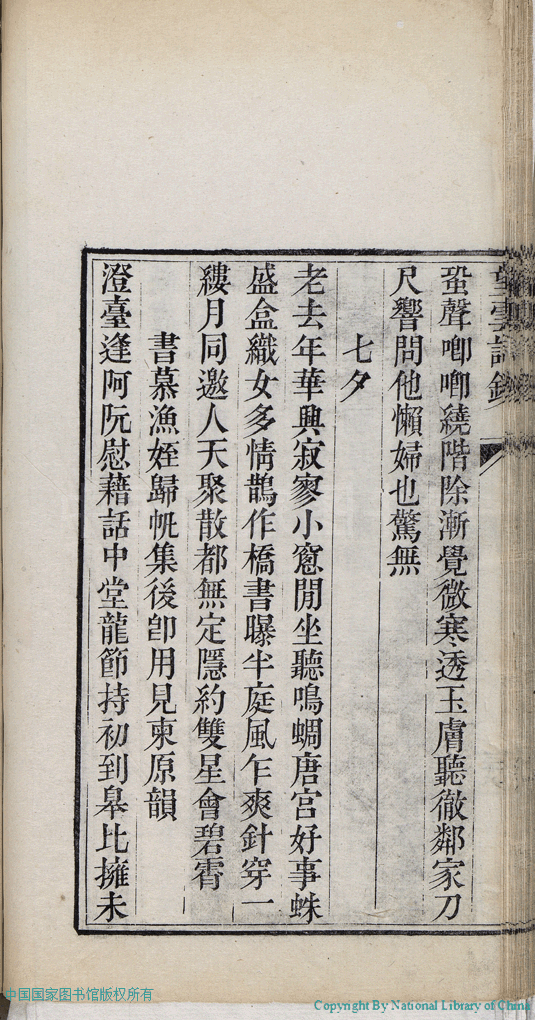 蛩聲唧唧繞階除漸覺微寒透玉膚聽徹鄰家刀
尺響問他懶婦也驚無
七夕
老去年華興寂寥小窻閒坐聽鳴蜩唐宮好事蛛
盛盒織女多情鵲作橋書曝半庭風乍爽針穿一
縷月同邀人天聚散都無定隱約雙星會碧霄
書慕漁姪歸帆集後卽用見柬原韻
澄臺逢阿阮慰藉話中堂龍節持初到皋比擁未
中国国家图书馆版权所有
Copyright By National Library of China